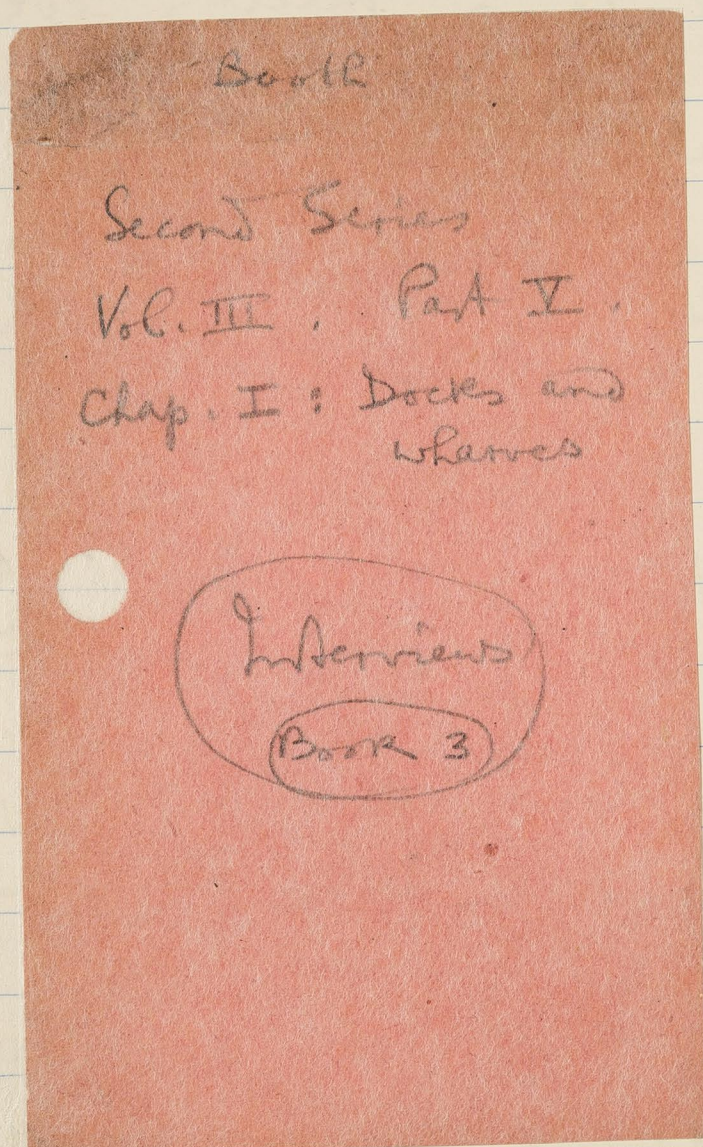 Booth
Second Series
Vol. III. Part V.
Chap. I: Docks and
wharves
Interviews
Book 3